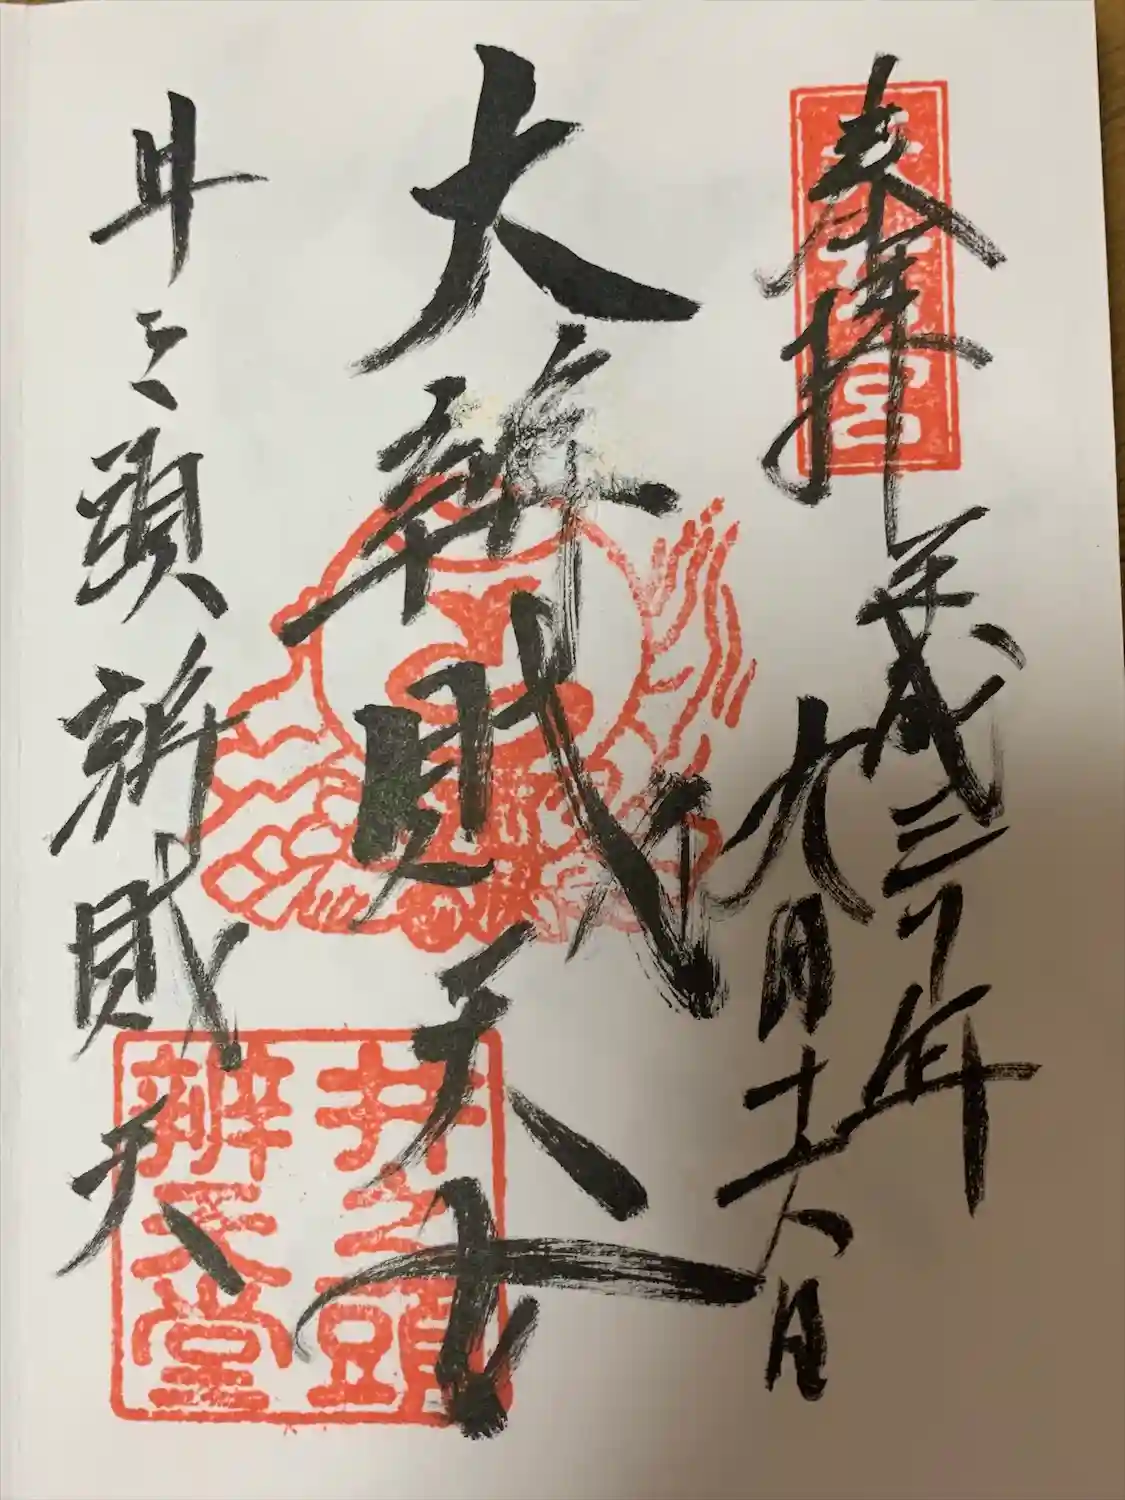 奉拝
平成三十年
九月十六日
大辨財天女
井之頭辨財天
井之頭
辨天堂